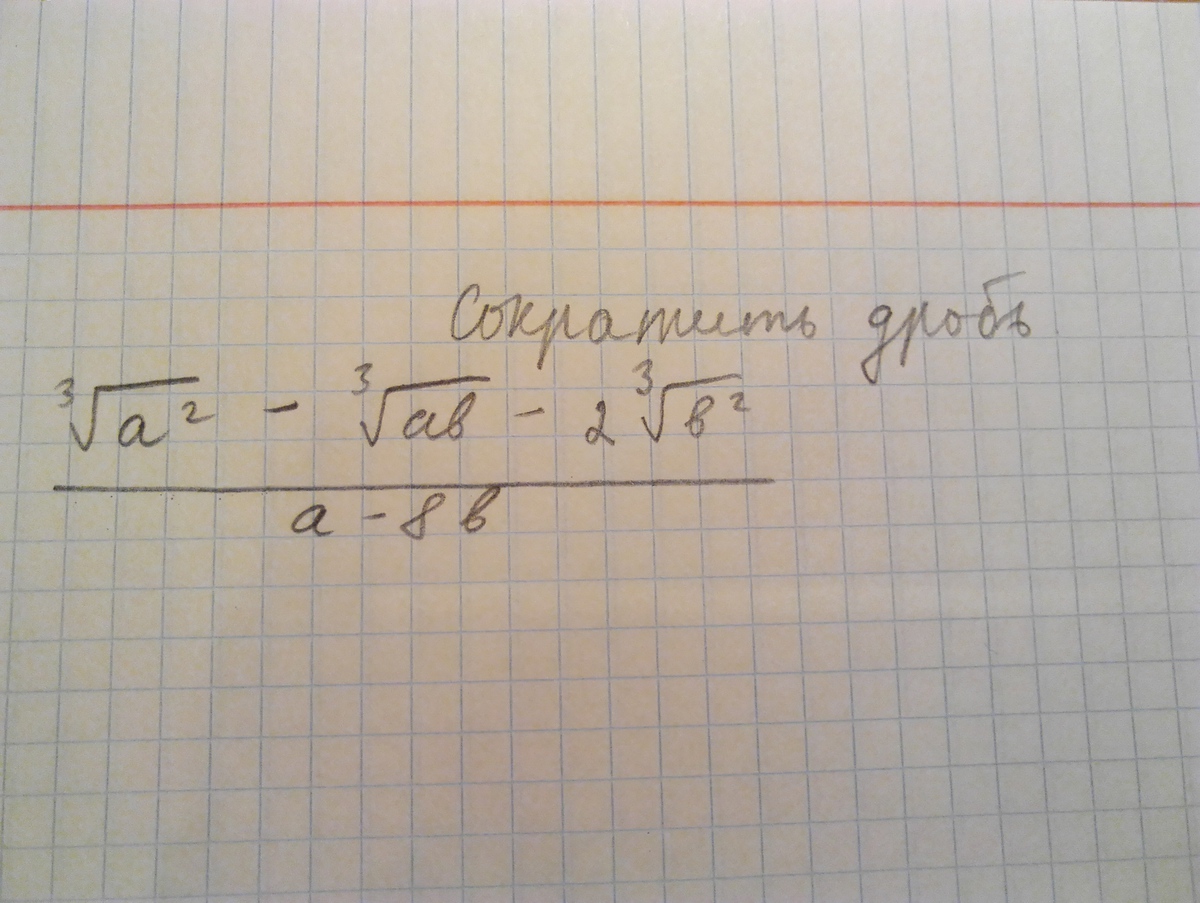 Сократить дробь
∛a² - ∛ab - 2∛b²
a - 8b